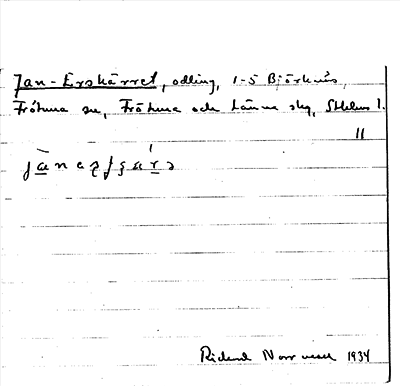 Jan-Erskärret, odling, 1-5 Björknäs,
Frötuna sn, Frötuna och Länna skg, Sthlms l.
11
Rickard Norr 1934